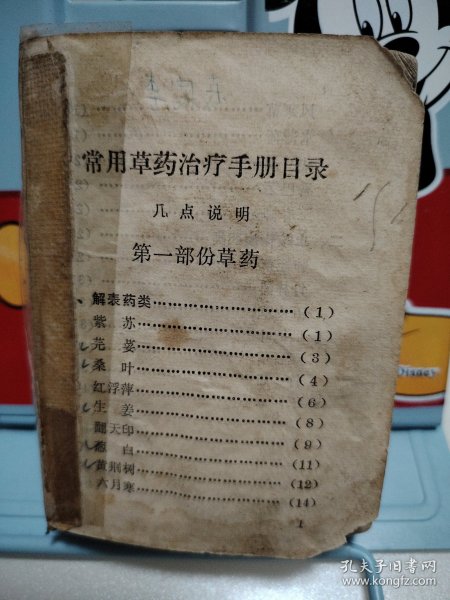 常用草药治疗手册目录
几点说明
第一部份草药
解表药类……………………(1)
紫苏……………………(1)
芫荽……………………(3)
桑叶……………………(4)
红浮萍……………………(6)
生姜……………………(8)
翻天印……………………(9)
葱白……………………(11)
黄荆树……………………(12)
六月寒……………………(14)
1
Disney
孔夫子旧书网
www.kongfz.com